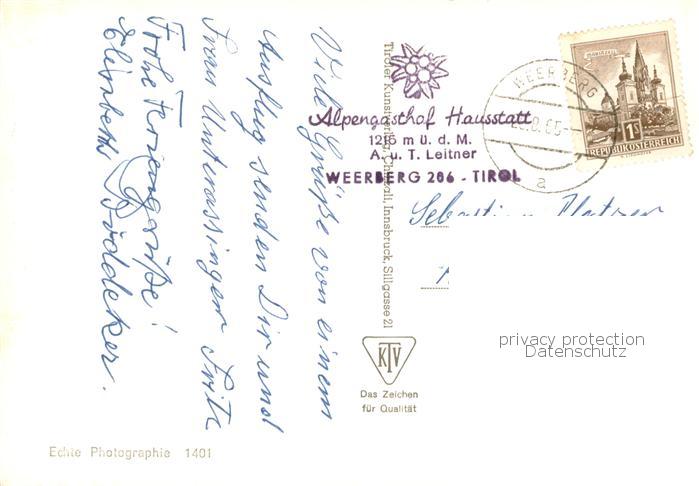 Viele Grüße von einem
Ausflug senden Dir und
Frau Unterassinger Fritz
Frohe Feriengrüße!
Elisabeth Böddeker.
Tiroler Kunstverlag Chizzali, Innsbruck, Sillgasse 21
Alpengasthof Hausstatt
1215 m ü. d. M.
A. u. T. Leitner
WEERBERG 206 - TIROL
WEERBERG
a
MARIAZELL
1S
REPUBLIK ÖSTERREICH
Sebastian Platzer
KTV
Das Zeichen
für Qualität
privacy protection
Datenschutz
Echte Photographie 1401